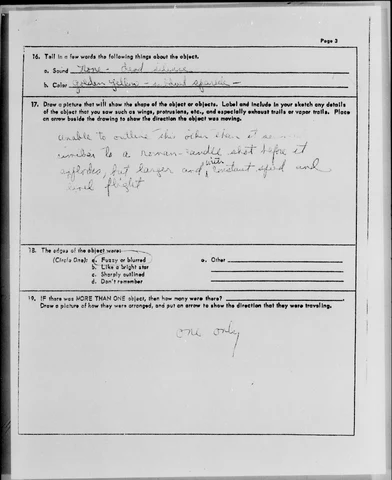 Page 3
16. Tell in a few words the following things about the object.
a. Sound None - dead silence
b. Color golden yellow -
17. Draw a picture that will show the shape of the object or objects. Label and include in your sketch any details
of the object that you saw such as wings, protrusions, etc., and especially exhaust trails or vapor trails. Place
an arrow beside the drawing to show the direction the object was moving.
unable to outline this other than it seemed
similar to a roman candle shot before it
explodes, but larger and with constant speed and
level flight
18. The edges of the object were:
(Circle One): a. Fuzzy or blurred e. Other
b. Like a bright star
c. Sharply outlined
d. Don't remember
19. IF there was MORE THAN ONE object, then how many were there?
Draw a picture of how they were arranged, and put an arrow to show the direction that they were traveling.
one only